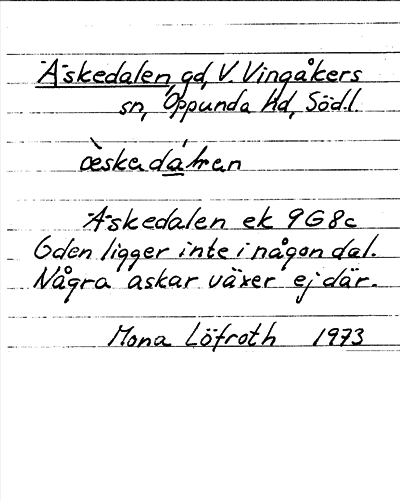 Äskedalen, gd, V. Vingåkers
sn, Oppunda hd, Södl.
Äskedalen ek 9G8c
Gden ligger inte i någon dal.
Några askar växer ej där.
Mona Löfroth 1973